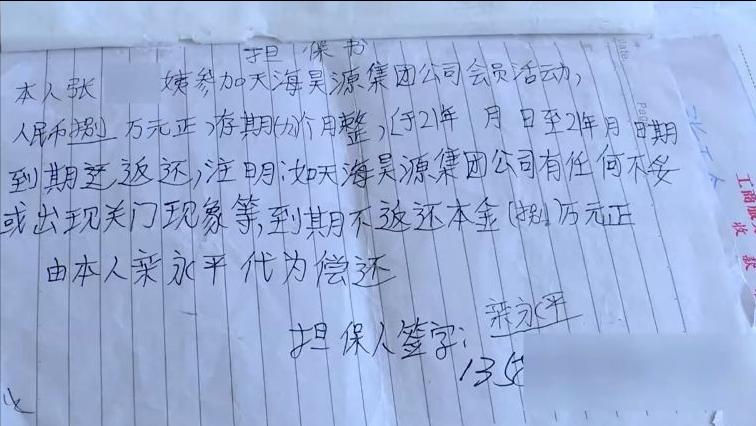 担保书
本人张 姨参加天海昊源集团公司会员活动,
人民币捌万元正,存期(六)个月整,(于21年 月 日至21年 月 日期
到期 返还,注明:如天海昊源集团公司有任何不妥
或出现关门现象等,到期不返还本金(捌)万元正
由本人栾永平代为偿还
担保人签字:栾永平
135
工商服
收款